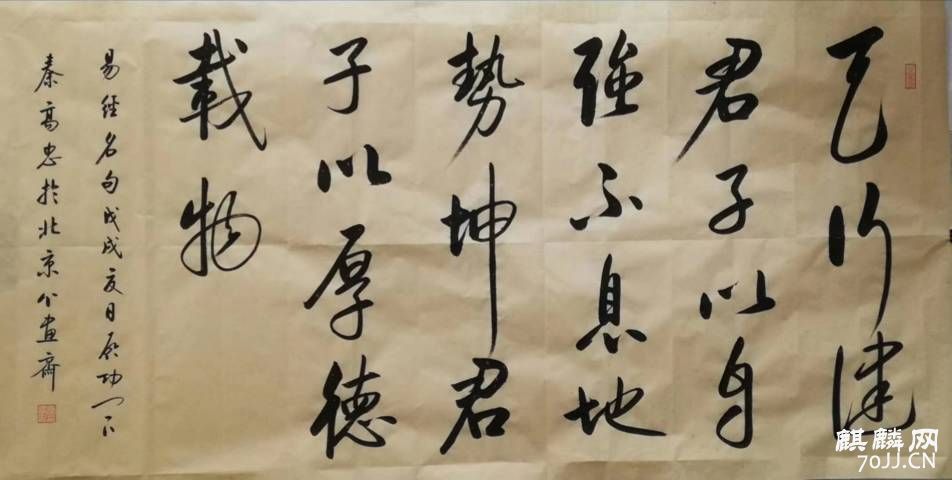 天行健
君子以自
強不息地
勢坤君
子以厚德
載物
易经名句戊戌夏日启功门下
秦高忠於北京个画斋
麒麟网
70JJ.CN